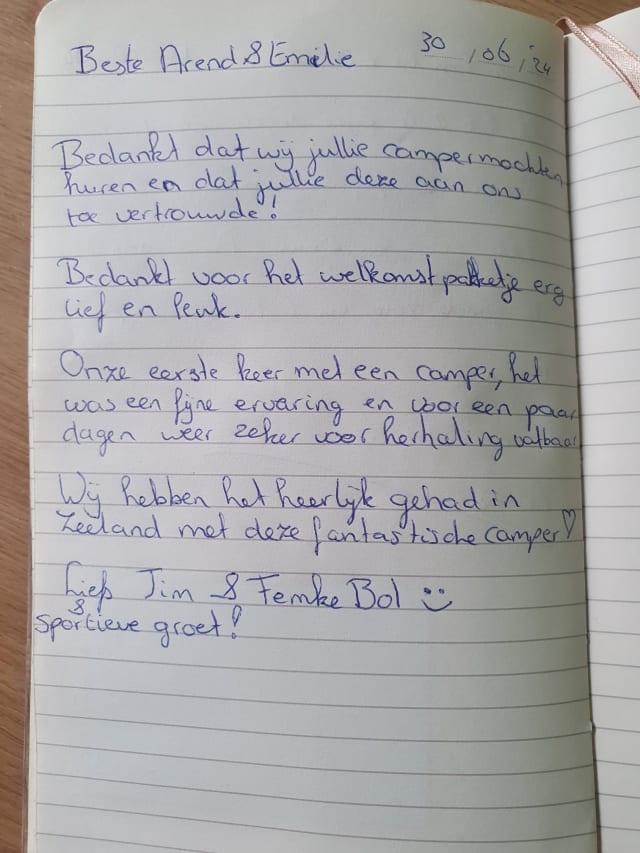 Beste Arend & Emilie 30,06,'24
Bedankt dat wij jullie camper mochten
huren en dat jullie deze aan ons
toe vertrouwde!
Bedankt voor het welkomst pakketje erg
lief en leuk.
Onze eerste keer met een camper, het
was een fijne ervaring en voor een paar
dagen weer zeker voor herhaling vatbaar
Wij hebben het heerlijk gehad in
Zeeland met deze fantastische camper ♡
Liefs Jim & Femke Bol :)
& sportieve groet!